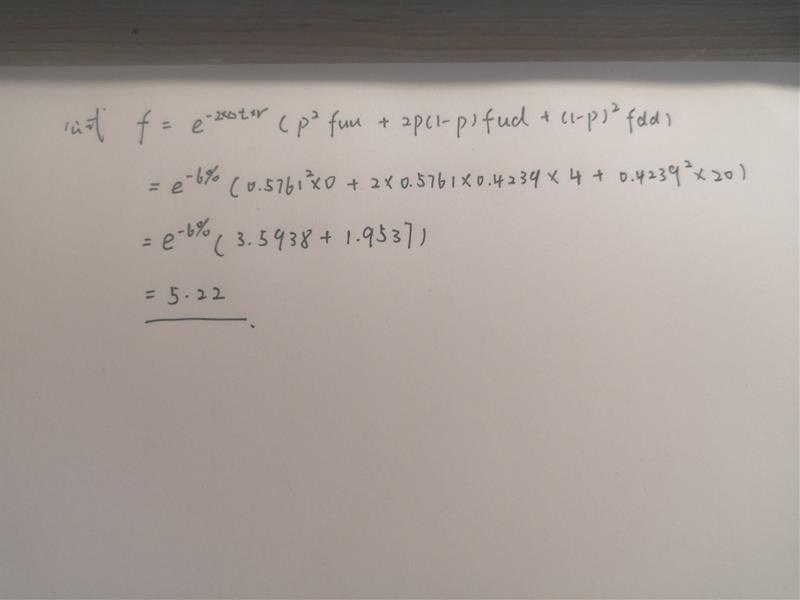 公式 f = e^{-2×Δt×r} (p² fuu + 2p(1-p) fud + (1-p)² fdd)
= e^{-6%} (0.5761²×0 + 2×0.5761×0.4239×4 + 0.4239²×20)
= e^{-6%} (3.5938 + 1.9537)
= 5.22.